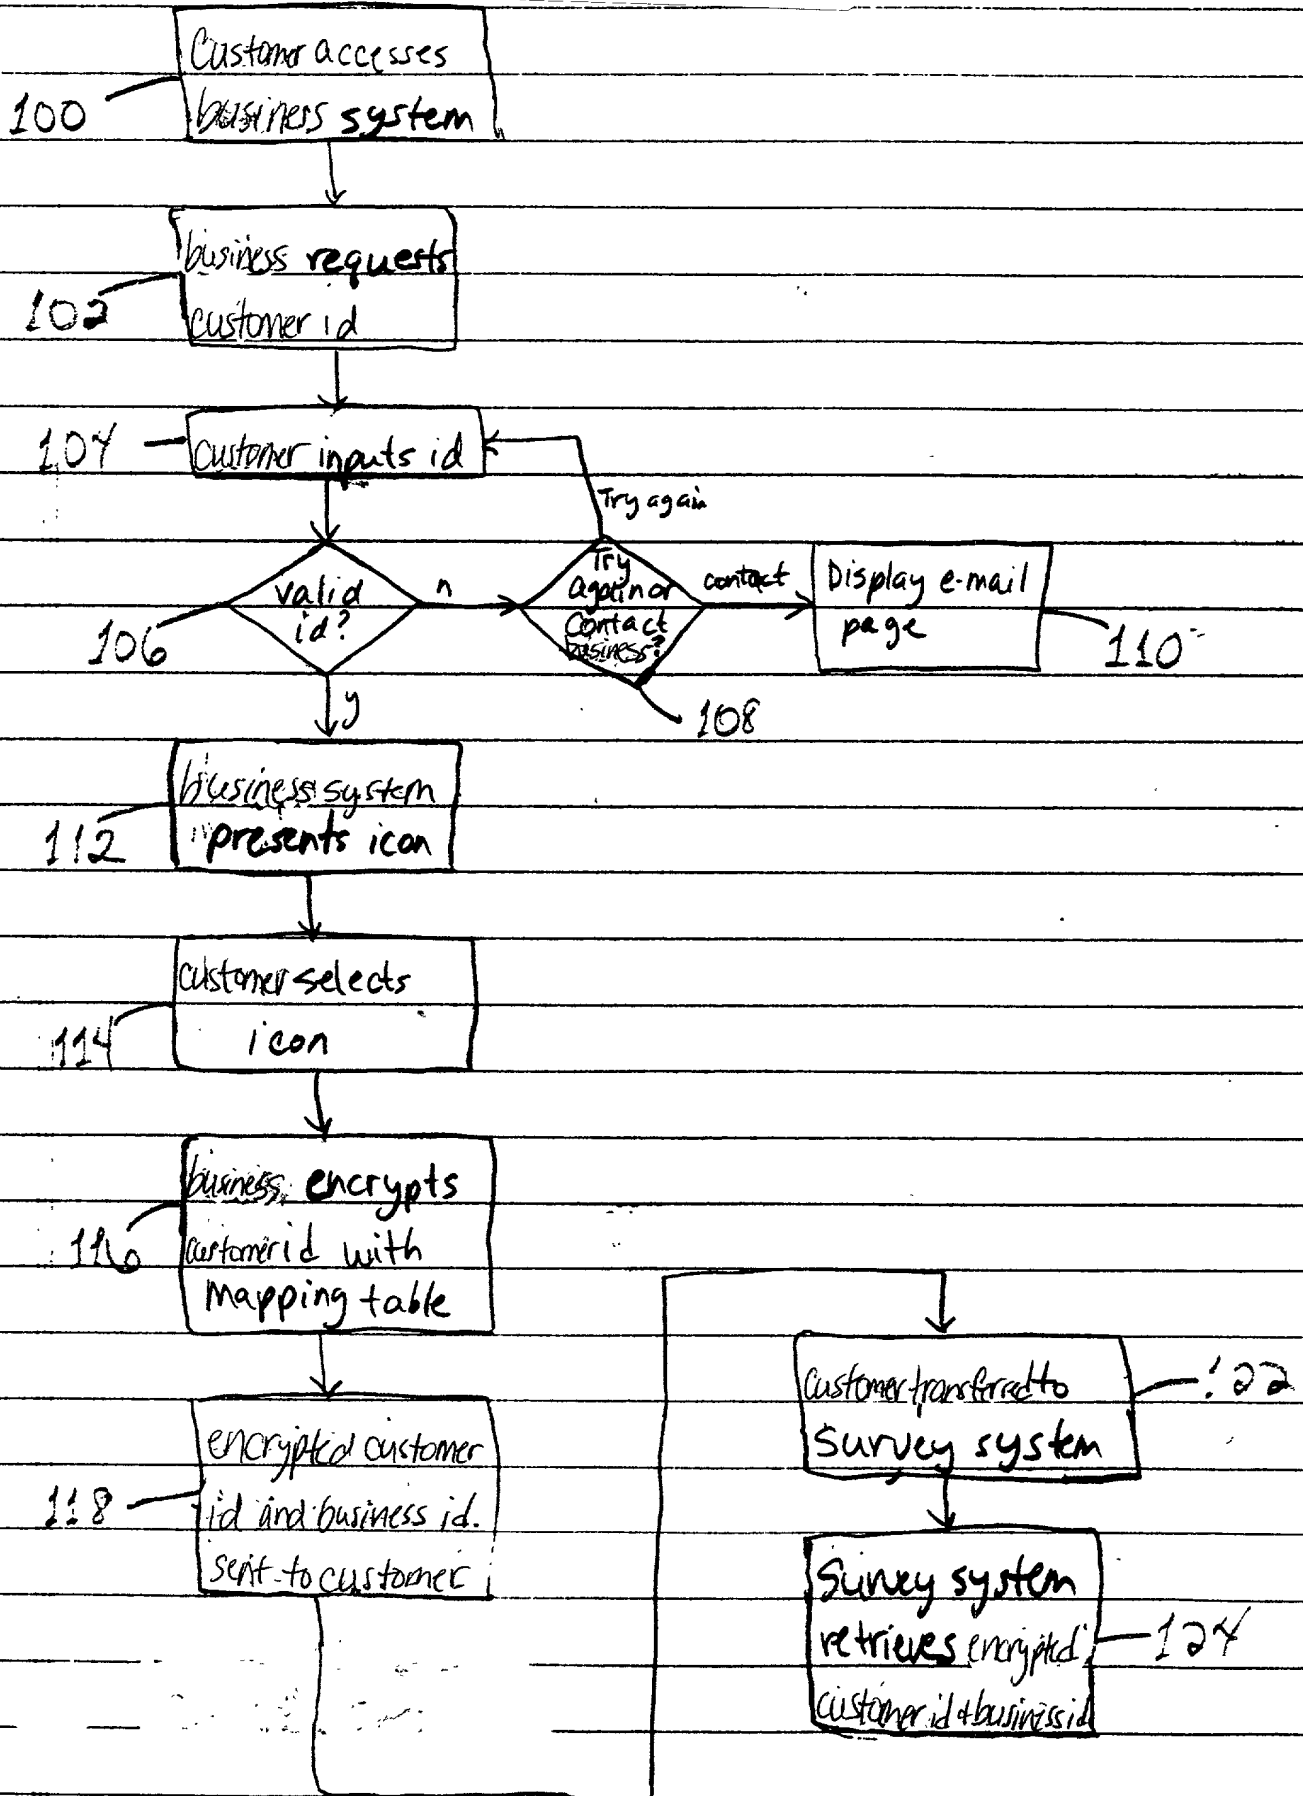 Customer accesses
business system
100
business requests
customer id
102
104
customer inputs id
Try again
valid
id?
n
106
Try
Again or
Contact
business?
contact
108
Display e-mail
page
110
y
business system
presents icon
112
customer selects
icon
114
business encrypts
customer id with
mapping table
116
encrypted customer
id and business id.
sent to customer
118
customer transferred to
survey system
122
Survey system
retrieves encrypted
customer id & business id
124